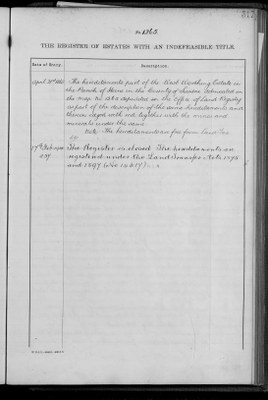 No 1265
THE REGISTER OF ESTATES WITH AN INDEFEASIBLE TITLE.
Date of Entry. Description.
April 21st 1865 The hereditaments part of the West Worthing Estate in
the Parish of Heene in the County of Sussex delineated in
the map No deposited in the Office of Land Registry
as part of the description of the same hereditaments and
thereon edged with red together with the mines and
minerals under the same
Note The hereditaments are free from Land Tax
17th February The Register is closed The hereditaments are
registered under the Land Transfer Acts 1875
and 1897 (No